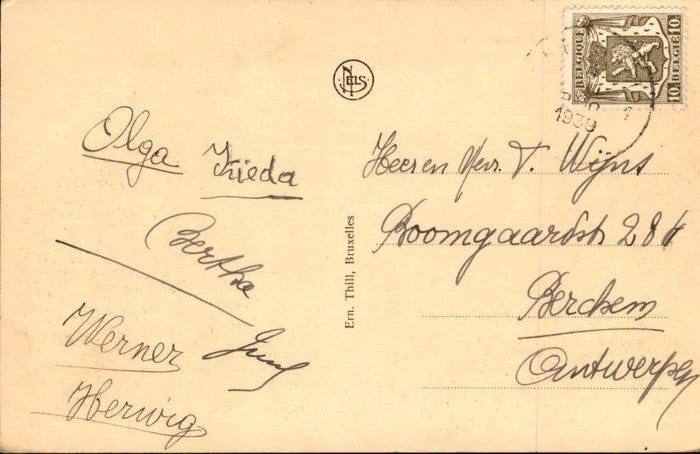 Olga Frieda
Bertha
Werner
Herwig
NELS
Ern. Thill, Bruxelles
BELGIQUE 10. BELGIË 10.
1939
Heer en Mevr. T. Wijns
Boomgaardstr 284
Berchem
Antwerpen